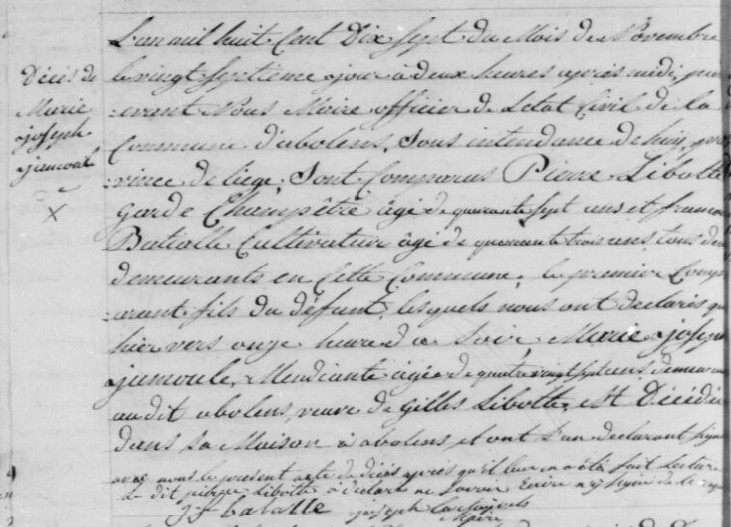 Décès de
Marie
joseph
jamoul
X
L'an mil huit Cent Dix Sept du Mois de Novembre
le vingt Septieme jour a deux heures après midi, par
-devant Nous Maire officier de L'etat Civil de la
Commune d'abolens, Sous intendance de huy, pro
-vince de liege, Sont Comparus Pierre Libotte
garde Champêtre âgé de quarante Sept ans et francois
Batialle Cultivateur âgé de quarante trois ans tous deux
demeurants en Cette Commune, le premier Comp
-arant fils du défunt, lesquels nous ont declarés que
hier vers onze heures du Soir, Marie joseph
jamoule, Mendiante âgée de quatre vingt Sept ans demeurant
au dit abolens, veuve de Gilles Libotte, est Décédée
dans Sa Maison a abolens, et ont l'un declarant Signé
avec nous le present acte de décès après qu'il leur en a été fait Lecture
le dit pierre Libotte a declaré ne Savoir Ecrire ny Signer de ce
joseph
Maire